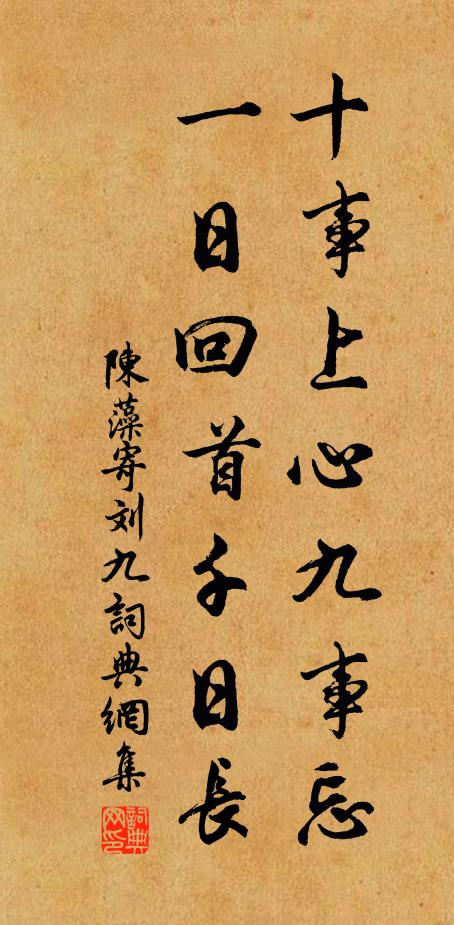 十事上心九事忘
一日回首千日長
陳藻寄刘九詞典網集
詞典网印